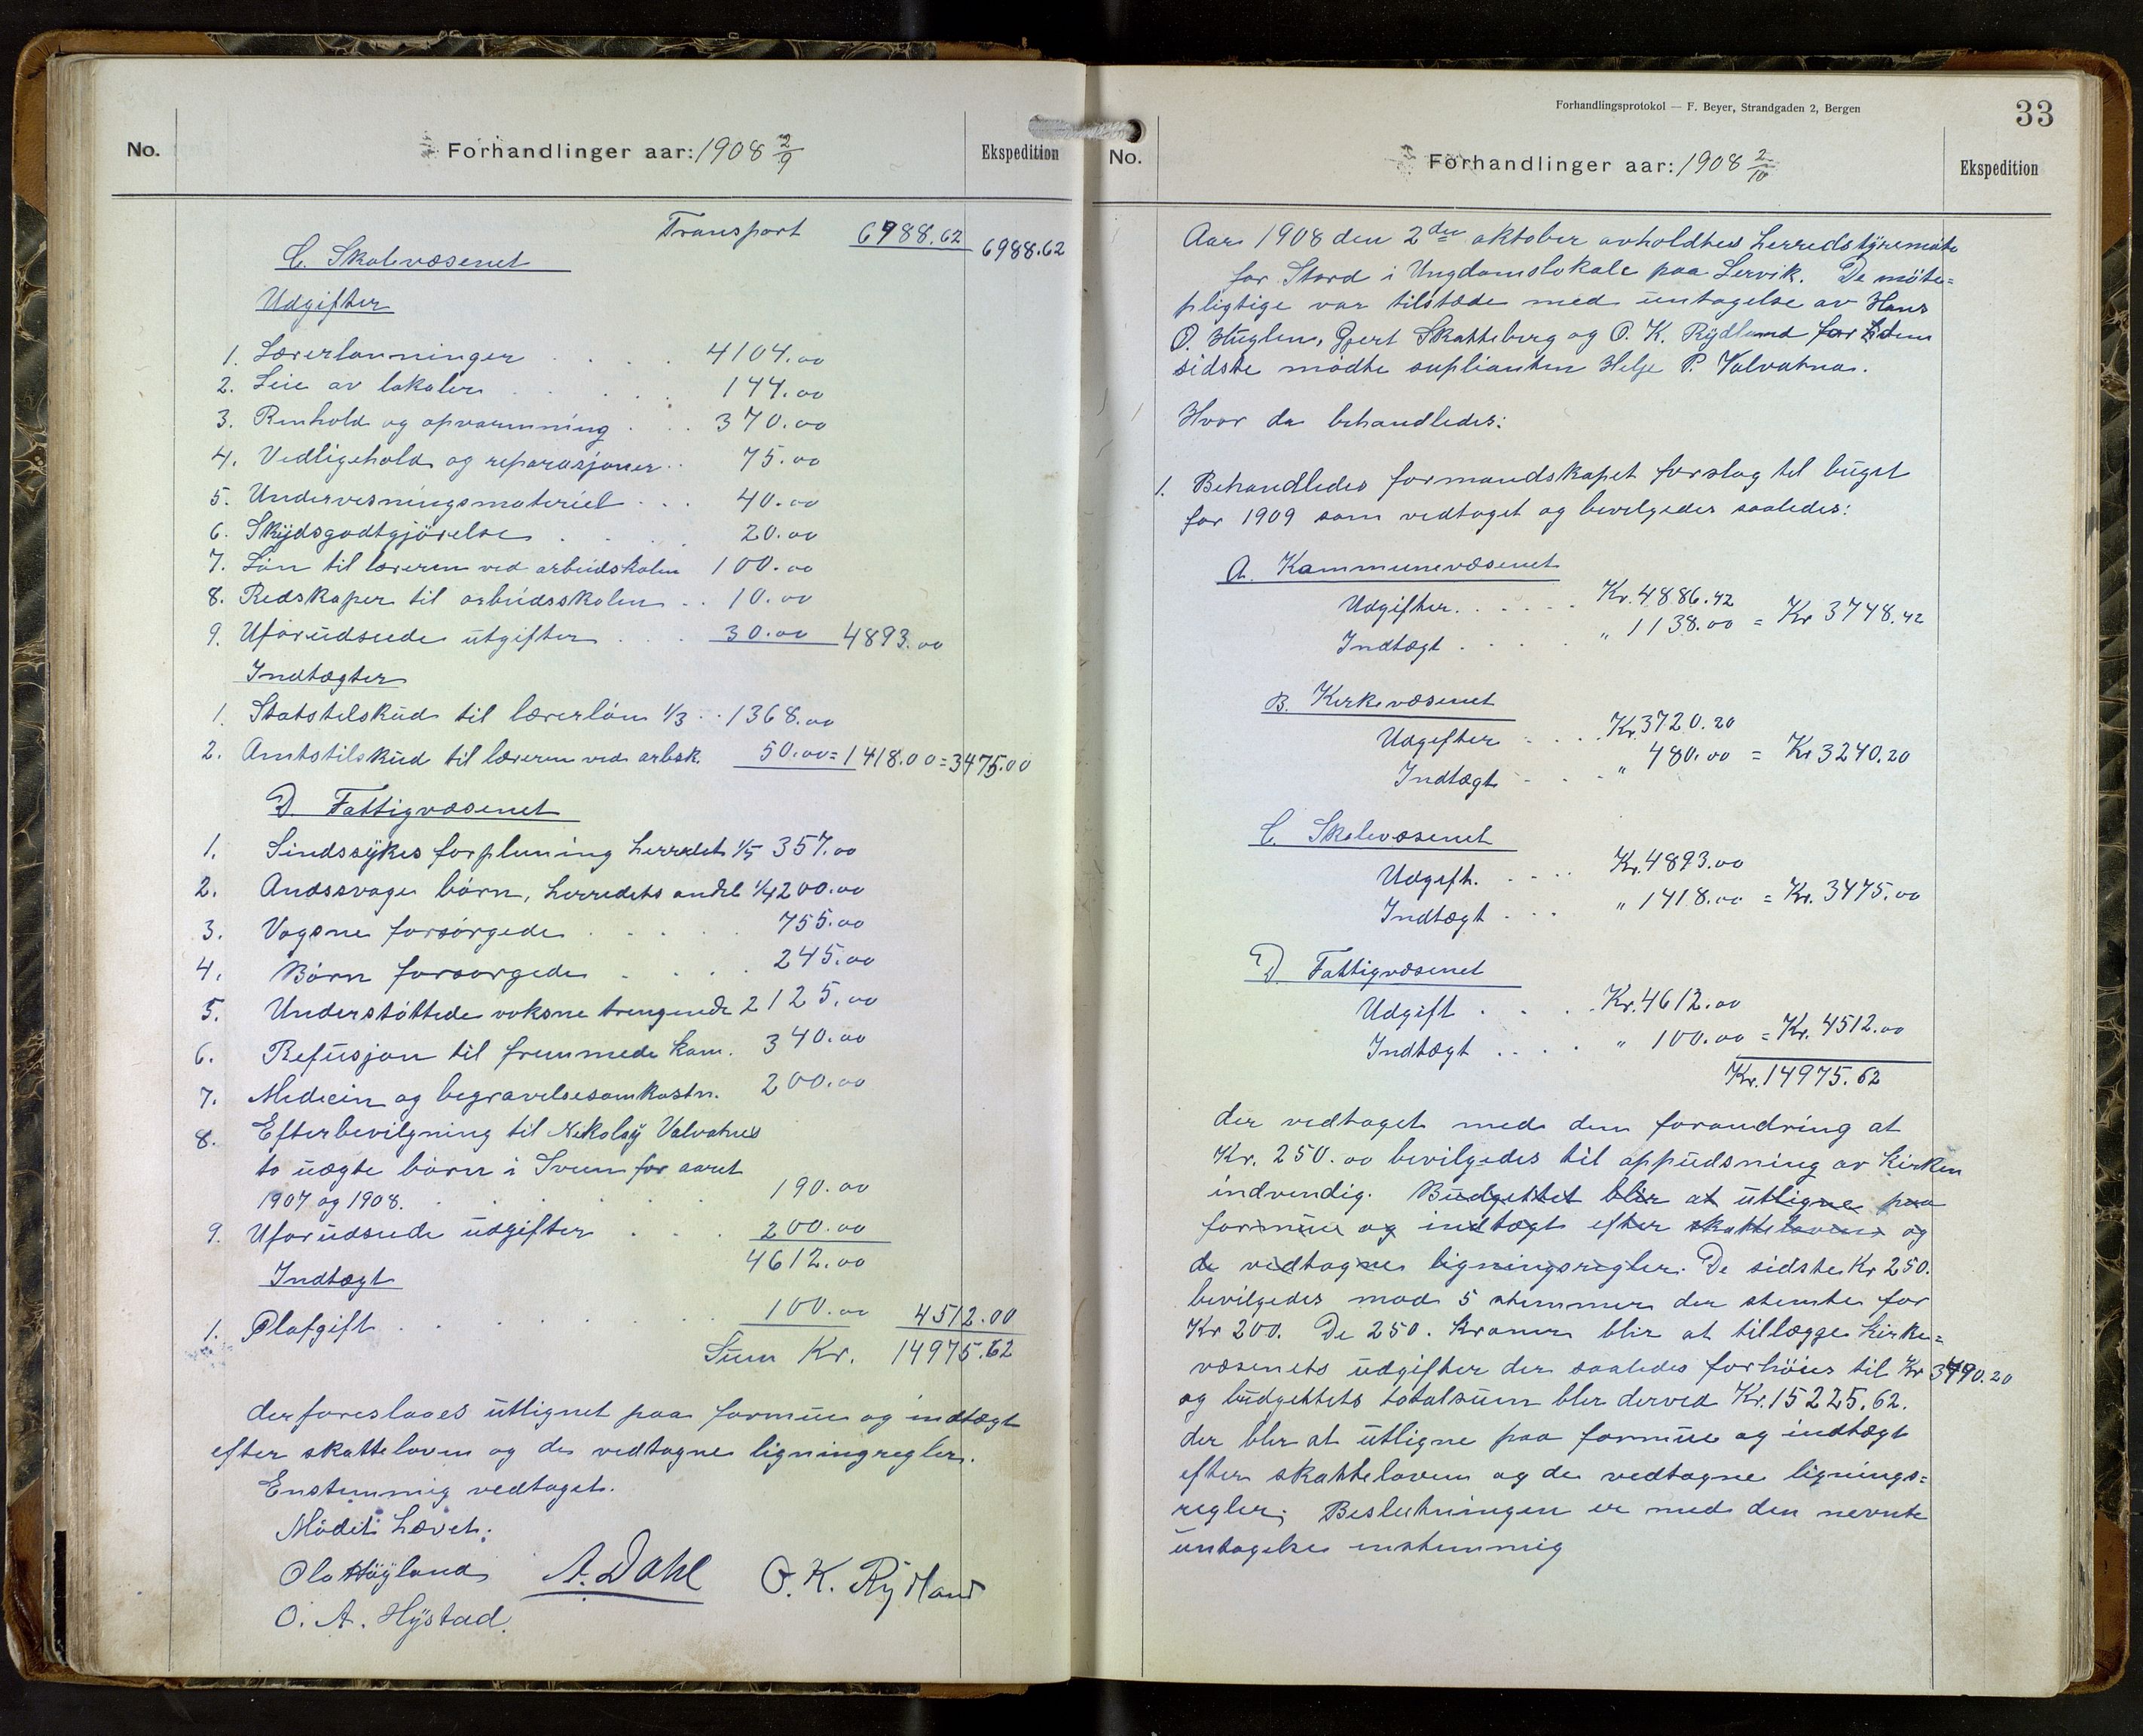 No.
Forhandlinger aar: 1908 2/9
Ekspedition
Transport 6988.62 6988.62
C. Skolevæsenet
Udgifter
1. Lærerlønninger . . . . 4104.00
2. Leie av lokaler . . . . 144.00
3. Renhold og opvarmning . . . 370.00
4. Vedligehold og reparasjoner . . 75.00
5. Undervisningsmateriel . . . 40.00
6. Skydsgodtgjörelse . . . . 20.00
7. Lön til læreren ved arbeidskolen 100.00
8. Redskaper til arbeidsskolen . . 10.00
9. Uforudseede utgifter . . . 30.00 4893.00
Indtægter
1. Statstilskud til lærerlön 1/3 . . 1368.00
2. Amtstilskud til læreren ved arbsk. 50.00 = 1418.00 = 3475.00
D. Fattigvæsenet
1. Sindssykes forpleining herredet 1/5 357.00
2. Andssvage börn, herredets andel 1/4 200.00
3. Vogsne forsörgede . . . . 755.00
4. Börn forsorgede . . . . 245.00
5. Understöttede voksne trengende 2125.00
6. Refusjon til fremmede kom. 340.00
7. Medicin og begravelsesomkostn. 200.00
8. Efterbevilgning til Nikolay Valvatnes
to uægte börn i Sveen for aaret
1907 og 1908. . . . . 190.00
9. Uforudseede udgifter . . . 200.00
4612.00
Indtægt
1. Plafgift . . . . . . . 100.00 4512.00
Sum Kr. 14975.62
der foreslaaes utlignet paa formue og indtægt
efter skatteloven og de vedtagne ligningregler.
Enstemmig vedtaget.
Mödet hævet.
Ola Höyland A. Dahl O. K. Rydland
O. A. Hystad.
Forhandlingsprotokol — F. Beyer, Strandgaden 2, Bergen
33
No.
Forhandlinger aar: 1908 2/10
Ekspedition
Aar 1908 den 2den oktober avholdtes herredstyremöte
for Stord i Ungdomslokale paa Lervik. De möte=
pligtige var tilstede med untagelse av Hans
O. Huglen, Gjert Skatteberg og O. K. Rydland for den
sidste mödte suplianten Helje P. Valvatna.
Hvor da behandledes:
1. Behandledes formandskapet forslag til buget
for 1909 som vedtaget og bevilgedes saaledes:
A. Kommunevæsenet
Udgifter . . . . . . Kr. 4886.42
Indtægt . . . . " 1138.00 = Kr 3748.42
B. Kirkevæsenet
Udgifter . . . . Kr. 3720.20
Indtægt . . . " 480.00 = Kr 3240.20
C. Skolevæsenet
Udgift. . . . . . Kr. 4893.00
Indtægt . . . " 1418.00 = Kr. 3475.00
D Fattigvæsenet
Udgift . . . . Kr. 4612.00
Indtægt . . . . " 100.00 = Kr. 4512.00
Kr. 14975.62
der vedtaget med den forandring at
Kr. 250.00 bevilgedes til oppudsning av kirken
indvendig. Budgettet blir at utligne paa
formue og indtægt efter skatteloven og
de vedtagne ligningsregler. De sidste Kr 250.
bevilgedes mod 5 stemmer der stemte for
Kr 200. De 250. kroner blir at tillægge kirke=
væsenets udgifter der saaledes forhöies til Kr 3490.20
og budgettets totalsum bler derved Kr. 15225.62.
der bler at utligne paa formue og indtægt
efter skatteloven og de vedtagne lignings=
regler. Beslutningen er med den nevnte
untagelse enstemmig